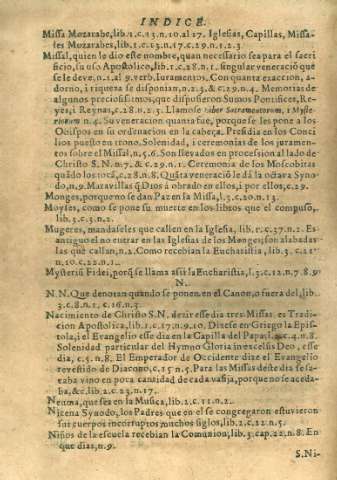 INDICE.
Missa Mozarabe, lib.2.c.13.n.10.al 17. Iglesias, Capillas, Missa-
les Mozarabes, lib.1.c.13.n.17.c.29.n.1.2.3
Missal, quien le dio este nombre, quan necessario sea para el sacri
ficio, su uso Apostolico, lib.1.c.28.n.1. singular veneració que
se le deve, n.1.al 9. verb. Iuramentos. Con quanta exaccion, a-
dorno, i riqueza se disponian, n.2.3. & c.29.n.4. Memorias de
algunos preciosissimos, que dispusieron Sumos Pontifices, Re-
yes, i Reynas, c.28.n.2.3. Llamose liber Sacramentorum, i Myste-
riorum n.4. Su veneracion quanta fue, porque se les pone a los
Obispos en su ordenacion en la cabeça. Presidia en los Conci
lios puesto en trono. Solenidad, i ceremonias de los juramen-
tos sobre el Missal, n.5.6. Son llevados en procession al lado de
Christo S.N. n.7. & c.29.n.1. Ceremonia de los Moscobitas
quãdo los toca, c.28.n.8. Quãta veneració le dá la octava Syno
do, n.9. Maravillas q̃ Dios á obrado en ellos, i por ellos, c.29.
Monges, porque no se dan Paz en la Missa, l.3.c.20.n.13.
Moyses, como se pone su muerte en los libros que el compuso,
lib.3.c.3.n.2.
Mugeres, mandaseles que callen en la Iglesia, lib.1.c.37.n.2. Es
antiguo el no entrar en las Iglesias de los Monges; son alabadas
las que callan, n.2. Como recebian la Eucharistia, lib.3. c.21.
n.10.c.22.n.1.
Mysteriũ Fidei, porq̃ se llama assi la Eucharistia, l.3.c.12.n.7.8.9.
N.
N. N. Que denotan quando se ponen en el Canon, o fuera del, lib.
3.c.8.n.1. c.16.n.3.
Nacimiento de Christo S.N. dezir esse dia tres Missas, es Tradi-
cion Apostolica, lib.1.c.17.n.9.10. Dizese en Griego la Epis-
tola, i el Evangelio esse dia en la Capilla del Papa, c.4.n.8.
Solenidad particular del Hymno Gloria in excelsis Deo, esse
dia, c.5.n.8. El Emperador de Occidente dize el Evangelio
revestido de Diacono, c.15.n.5. Para las Missas deste dia se sa-
caba vino en poca cantidad de cada vasija, porque no se aceda-
ba, &c. lib.2.c.23.n.17.
Neuma, que sea en la Musica, lib.2.c.11.n.2.
Nizena Synodo, los Padres que en el se congregaron estuvieron
sus cuerpos incorruptos muchos siglos, lib.2.c.22.n.5.
Niños de la escuela recebian la Comunion, lib.3.cap.22.n.8. En
que dias, n.9.
S.Ni-